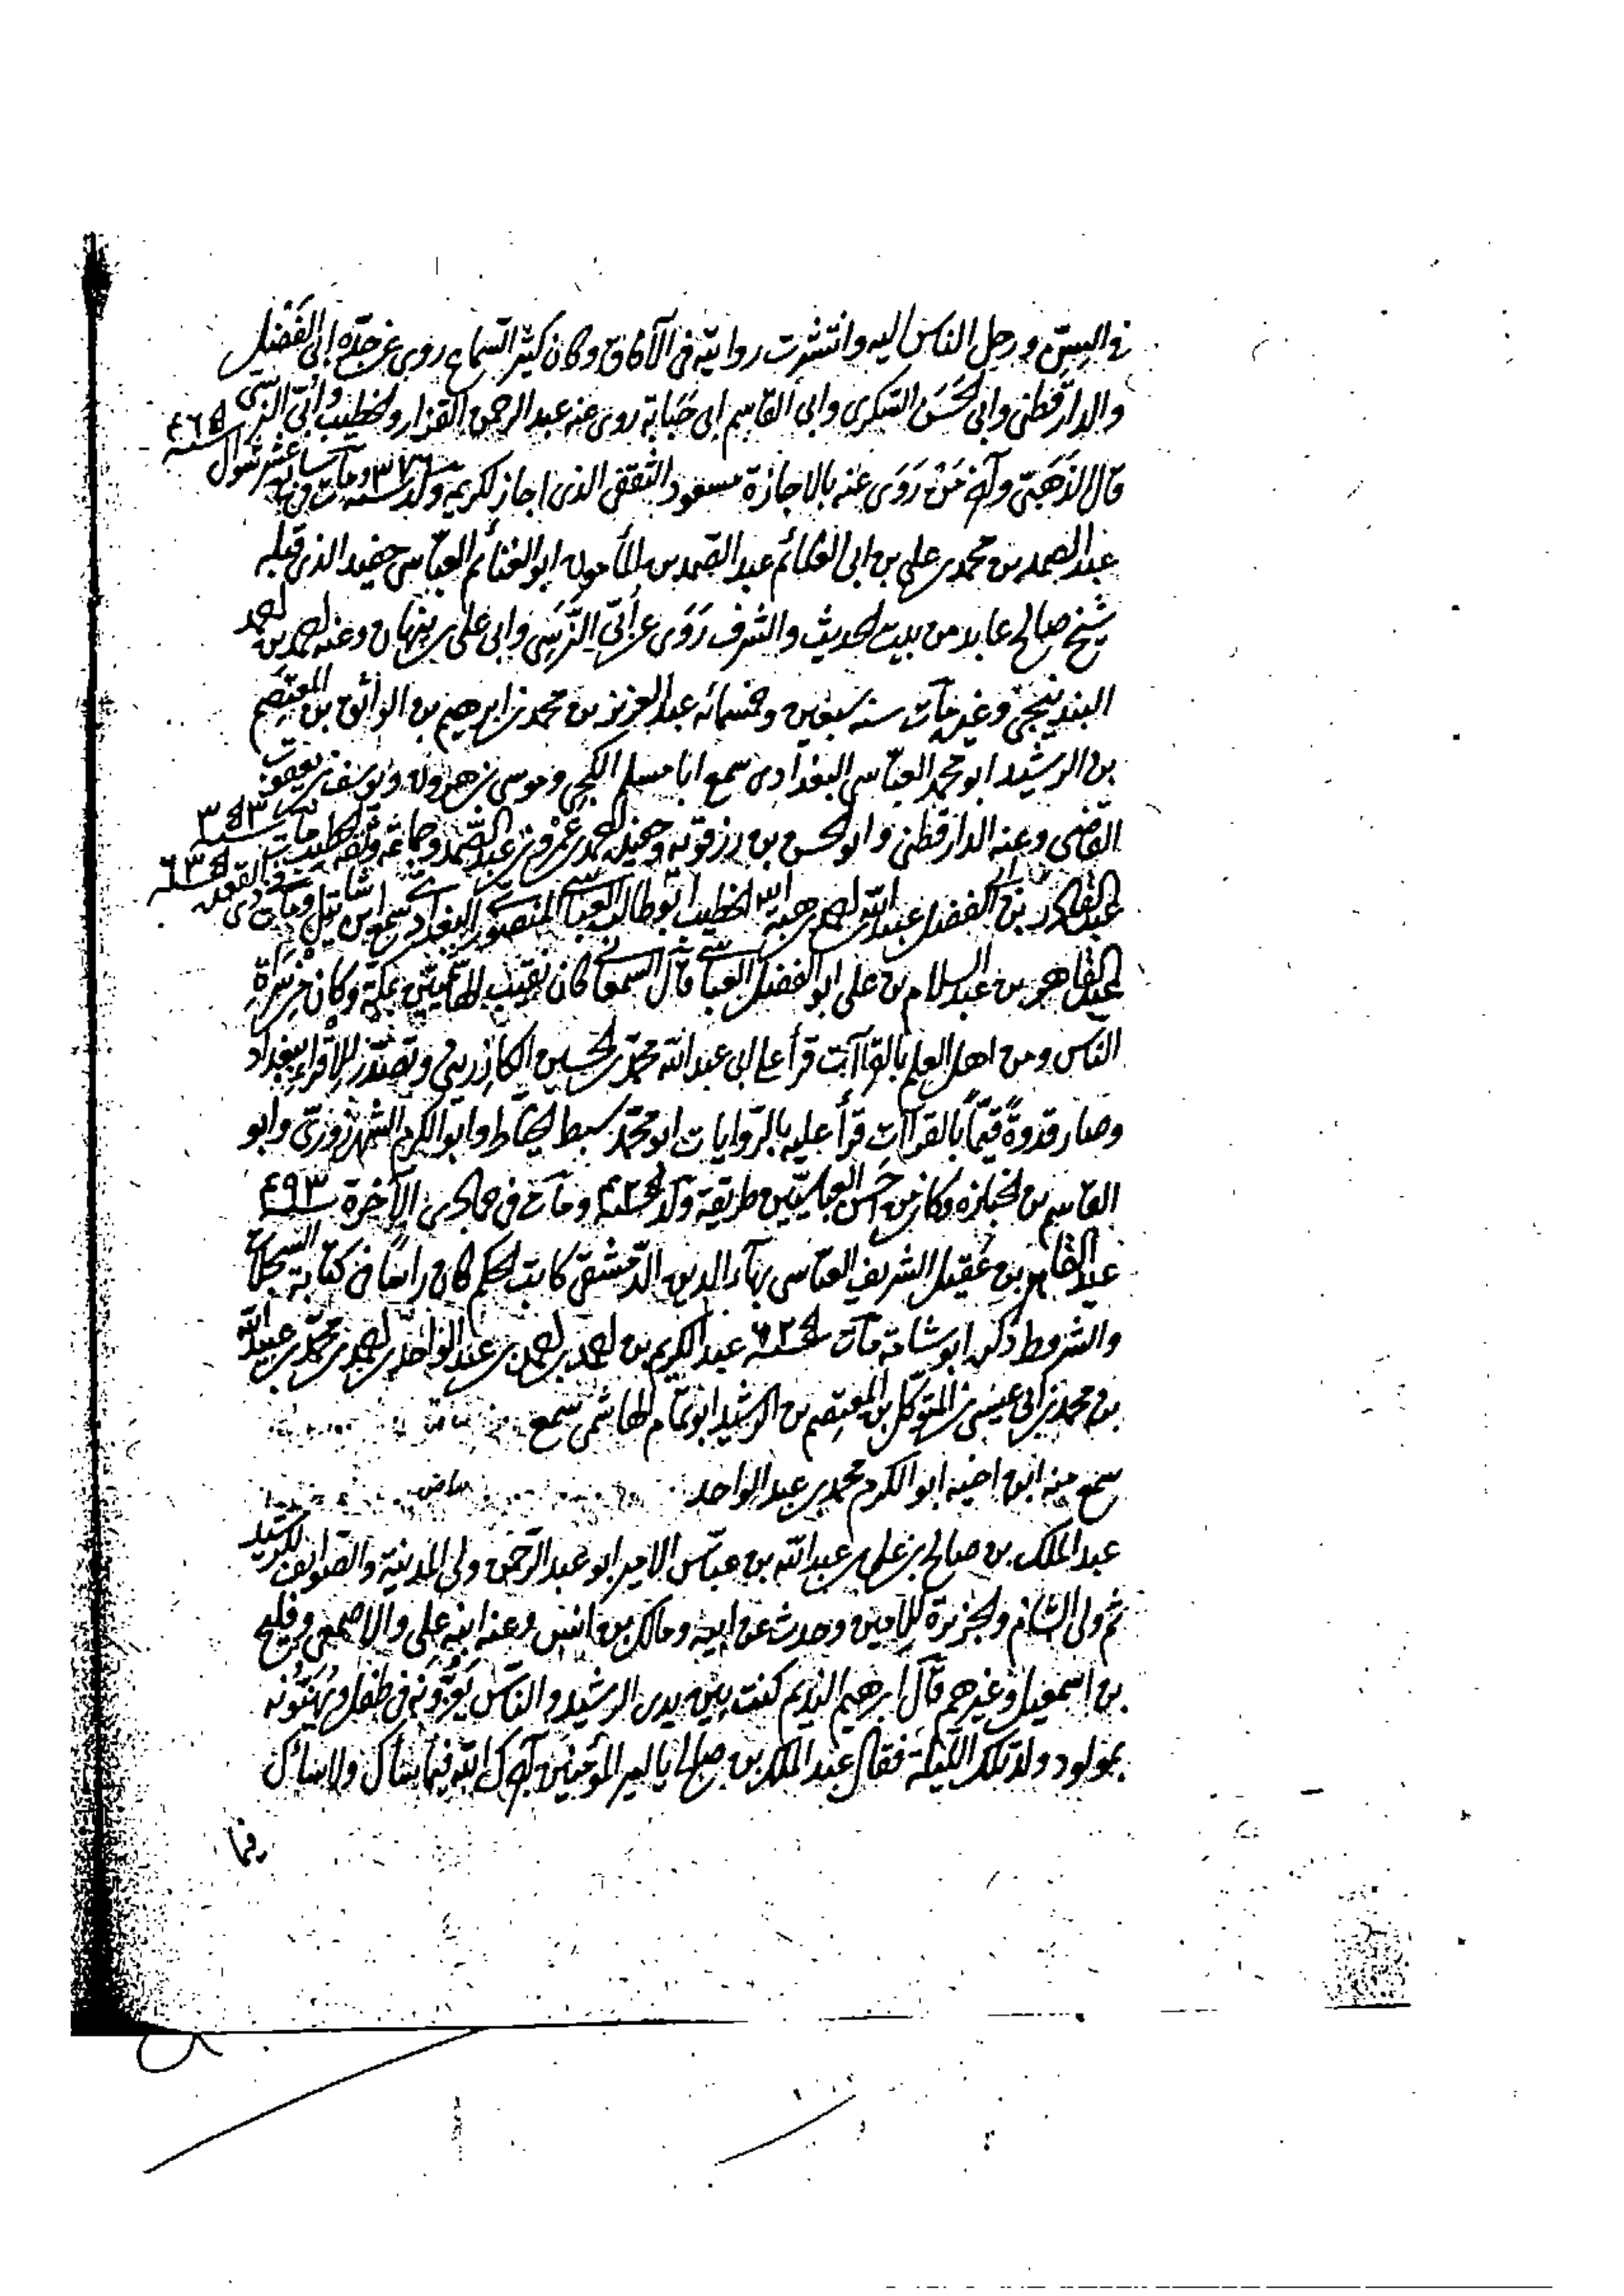 في السن ورحل الناس اليه وانتشرت روايته في الآفاق وكان كثير السماع روى عن جده ابي الفضل
والدارقطني وابي الحسن السكري وابي القاسم ابن حبابة روى عنه عبد الرحمن القزاز والخطيب وأبي النرسي
قال الذهبي وآخر من روى عنه بالاجازة مسعود الثقفي الذي اجاز لكريمة ولد سنة ٣٧٦ ومات في شوال سنة ٤٦٥
عبد الصمد بن محمد بن علي بن ابي الغنائم عبد الصمد بن المأمون ابو الغنائم العباسي حفيد الذي قبله
شيخ صالح عابد من بيت الحديث والشرف روى عن أبي النرسي وابي علي بن نبهان وعنه احمد بن احمد
البندنيجي وغيره مات سنة سبعين وخمسمائه عبد العزيز بن محمد بن ابرهيم بن الواثق بن المعتصم
بن الرشيد ابو محمد العباسي البغدادي سمع ابا مسلم الكجي وموسى بن هرون ويوسف بن يعقوب
القاضي وعنه الدارقطني وابو الحسن بن رزقويه وحفيده احمد بن عمر بن عبد الصمد وجماعة وثقه الخطيب مات سنة ٣٥٣
عبد القادر بن الفضل بن عبد الله بن احمد بن هبة الله الخطيب ابو طالب العباسي المنصوري البغدادي سمع ابن شاتيل ومات في ذي القعدة سنة ٦٣٥
عبد القاهر بن عبد السلام بن علي ابو الفضل العباسي قال السمعاني كان نقيب الهاشميين بمكة وكان من سراة
الناس ومن اهل العلم بالقراآت قرأ على ابي عبد الله محمد بن الحسين الكازريني وتصدر للاقراء ببغداد
وصار قدوة قيّماً بالقراآت قرأ عليه بالروايات ابو محمد سبط الخياط وابو الكرم الشهرزوري وابو
القاسم بن الخبازة وكان من احسن العباسيين طريقة ولد سنة ٤٢٥ ومات في جمادى الآخرة سنة ٤٩٣
عبد القاهر بن عقيل الشريف العباسي بهاء الدين الدمشقي كاتب الحكم كان رأسا في كتابة السجلات
والشروط ذكره ابو شامة مات سنة ٦٢٥ عبد الكريم بن احمد بن احمد بن عبد الواحد بن احمد بن محمد بن عبيد الله
بن محمد بن ابي عيسى بن المتوكل بن المعتصم بن الرشيد ابو تمام الهاشمي سمع بياض
سمع منه ابن اخيه ابو الكرم محمد بن عبد الواحد بياض
عبد الملك بن صالح بن علي بن عبد الله بن عباس الامير ابو عبد الرحمن ولي المدينة والصوايف للرشيد
ثم ولي الشام والجزيرة للامين وحدث عن ابيه ومالك بن انس وعنه ابنه علي والاصمعي وفليح
بن اسمعيل وغيرهم قال ابرهيم النديم كنت بين يدي الرشيد والناس يعزونه في طفل ويهنئونه
بمولود ولد تلك الليلة فقال عبد الملك بن صالح يا امير المؤمنين آجرك الله فيما ساءك ولا ساءك
فيما